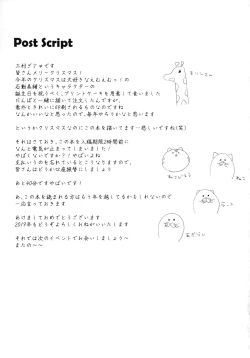 Post Script
二村ざじゅです
皆さんメリークリスマス！
今年のクリスマスは大好きなえむえむっ！の
石動美緒というキャラクターの
誕生日を祝うべく、プリントケーキを用意して食いました
りんぱと一緒に届いて注文したんですが、
意外ときれいに印刷されるものなのですね
なんかいいなと思ったので、毎年やろうかなと思います
というかクリスマスなのにこの本を描いてます…悲しいですね(笑)
それはさておき、この本を入稿期限2時間前に
なんと電気が止まってしまいました！
やばくないですか？！やばいよね
支払いうのを忘れているとこうなりますので、
皆さんはどうか口座振替にしましょう
あと40分ですやばいです！
あ、この本を読まれる方はもう年を越してるかもしれないので
一応言っておきます
あけましておめでとうございます
2019年もどうぞよろしくおねがいいたします
それでは次のイベントでお会いしましょう～
またの～～
きりんさん
ねこ
あざらし